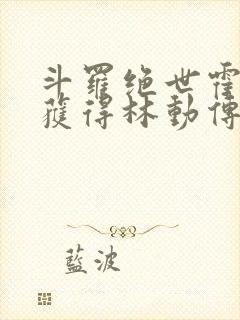 斗羅绝世霍
獲得林動傳
藍波